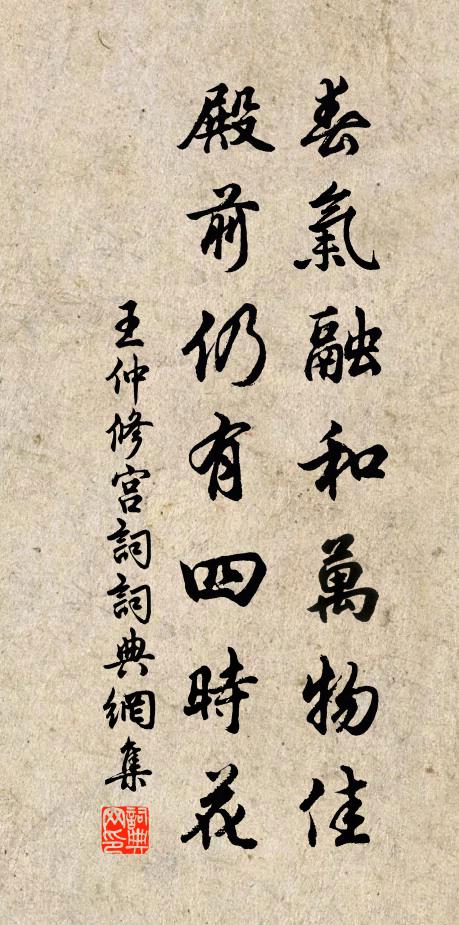 春氣融和萬物佳
殿前仍有四時花
王仲修宮詞詞典網集
詞典
网印